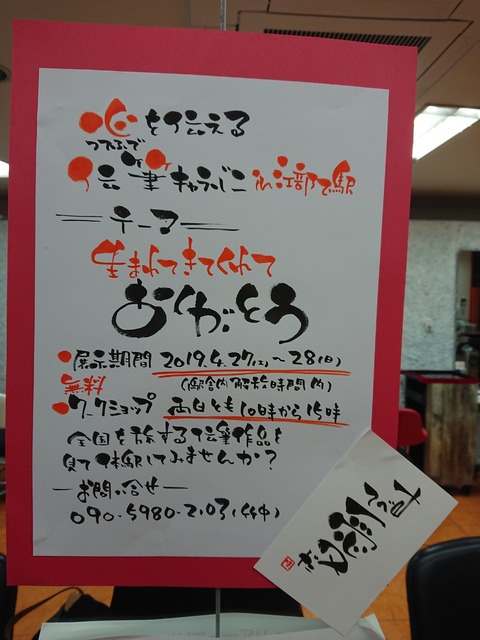 心を伝える
つてふで
伝筆キャラバン in 江部乙駅
テーマ
生まれてきてくれて
ありがとう
展示期間 2019.4.27(土)〜28(日)
(駅舎内解放時間内)
無料
ワークショップ 両日とも10時から15時
全国を旅する伝筆作品を
見て体験してみませんか?
お問い合せ
090-5980-2103